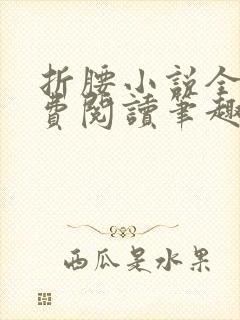 折腰小説全
費閱讀筆趣
西瓜是水果